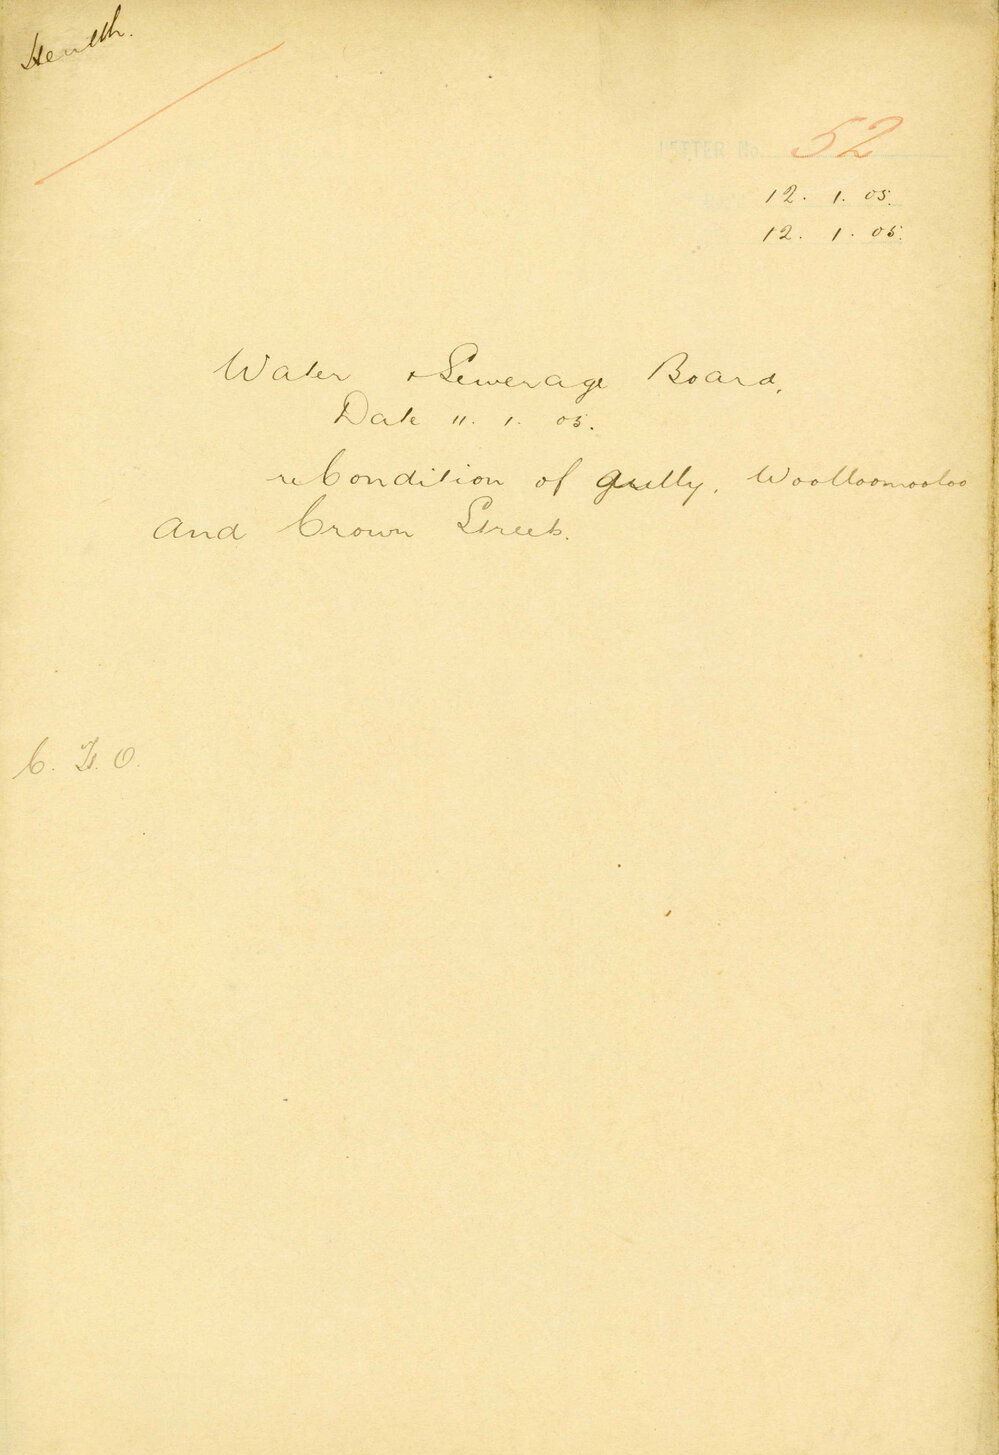 Health.
LETTER No. 52
12. 1. 05.
12. 1. 05.
Water & Sewerage Board,
Date 11. 1. 05.
re Condition of gully, Woolloomooloo
and Crown Streets.
C. H. O.